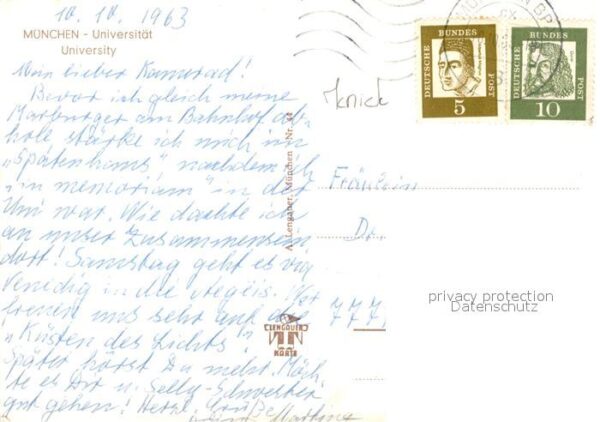 10. 10. 1963
MÜNCHEN - Universität
University
Mein lieber Kamerad!
Bevor ich gleich meine
Marburger am Bahnhof ab-
hole, stärke ich mich im
"Spatenhaus", nachdem ich
"in memoriam" in der
Uni war. Wie dachte ich
an unser Zusammensein
dort! Samstag geht es via
Venedig in die
freuen uns sehr auf die
"Küsten des Lichts"!
Später hörst Du mehr. Möch-
te es Dir u. Selly-Schwester
gut gehen! Herzl. Grüße
Martina
knick
DEUTSCHE BUNDES POST
5
DEUTSCHE BUNDES POST
10
Fräulein
Dr.
777
A. Lengauer, München Nr. 44
LENGAUER
KARTE
privacy protection
Datenschutz